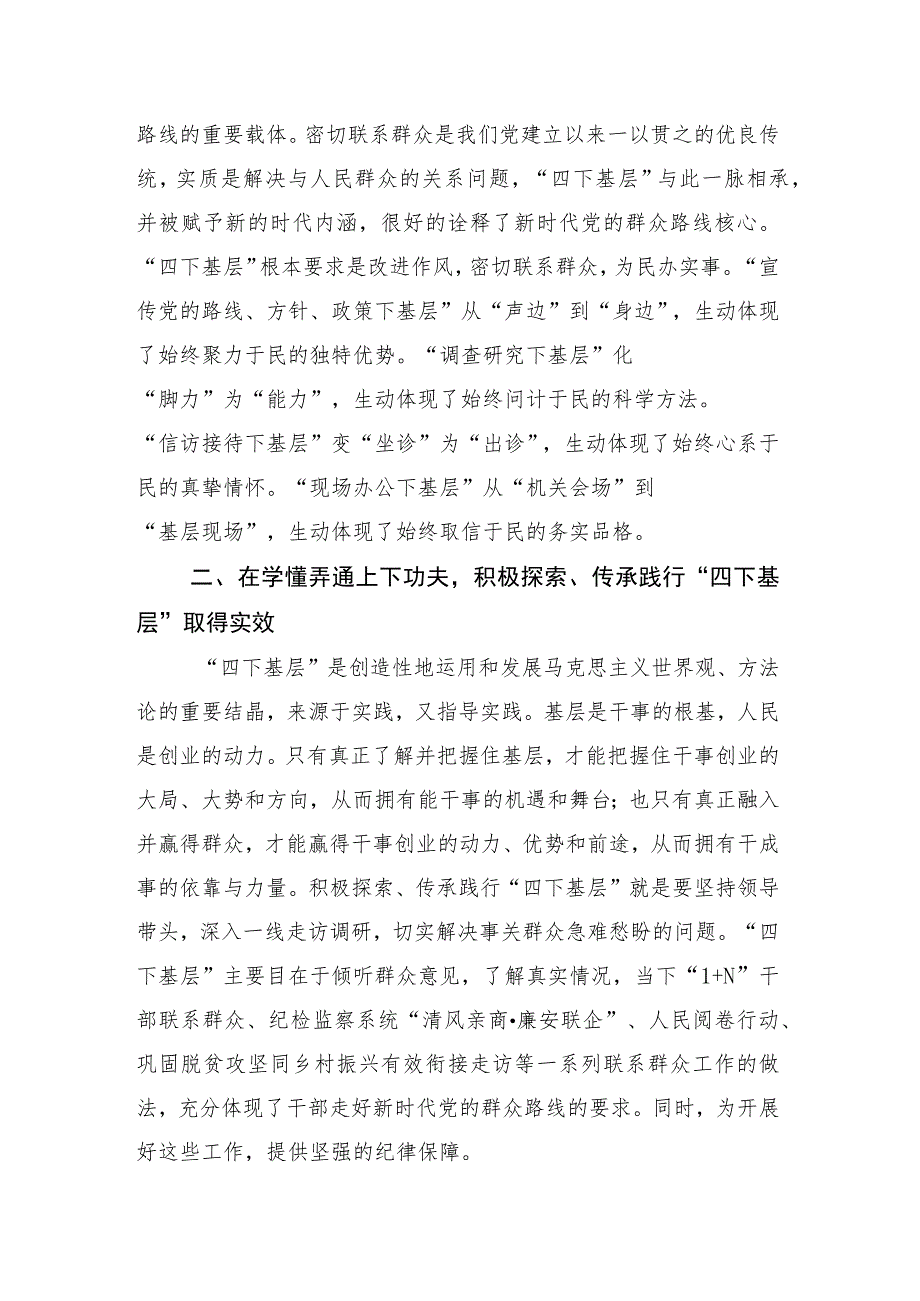 路线的重要载体。密切联系群众是我们党建立以来一以贯之的优良传
统，实质是解决与人民群众的关系问题，“四下基层”与此一脉相承，
并被赋予新的时代内涵，很好的诠释了新时代党的群众路线核心。
“四下基层”根本要求是改进作风，密切联系群众，为民办实事。“宣
传党的路线、方针、政策下基层”从“声边”到“身边”，生动体现
了始终聚力于民的独特优势。“调查研究下基层”化
“脚力”为“能力”，生动体现了始终问计于民的科学方法。
“信访接待下基层”变“坐诊”为“出诊”，生动体现了始终心系于
民的真挚情怀。“现场办公下基层”从“机关会场”到
“基层现场”，生动体现了始终取信于民的务实品格。
二、在学懂弄通上下功夫，积极探索、传承践行“四下基
层”取得实效
“四下基层”是创造性地运用和发展马克思主义世界观、方法
论的重要结晶，来源于实践，又指导实践。基层是干事的根基，人民
是创业的动力。只有真正了解并把握住基层，才能把握住干事创业的
大局、大势和方向，从而拥有能干事的机遇和舞台；也只有真正融入
并赢得群众，才能赢得干事创业的动力、优势和前途，从而拥有干成
事的依靠与力量。积极探索、传承践行“四下基层”就是要坚持领导
带头，深入一线走访调研，切实解决事关群众急难愁盼的问题。“四
下基层”主要目在于倾听群众意见，了解真实情况，当下“1+N”干
部联系群众、纪检监察系统“清风亲商•廉安联企”、人民阅卷行动、
巩固脱贫攻坚同乡村振兴有效衔接走访等一系列联系群众工作的做
法，充分体现了干部走好新时代党的群众路线的要求。同时，为开展
好这些工作，提供坚强的纪律保障。